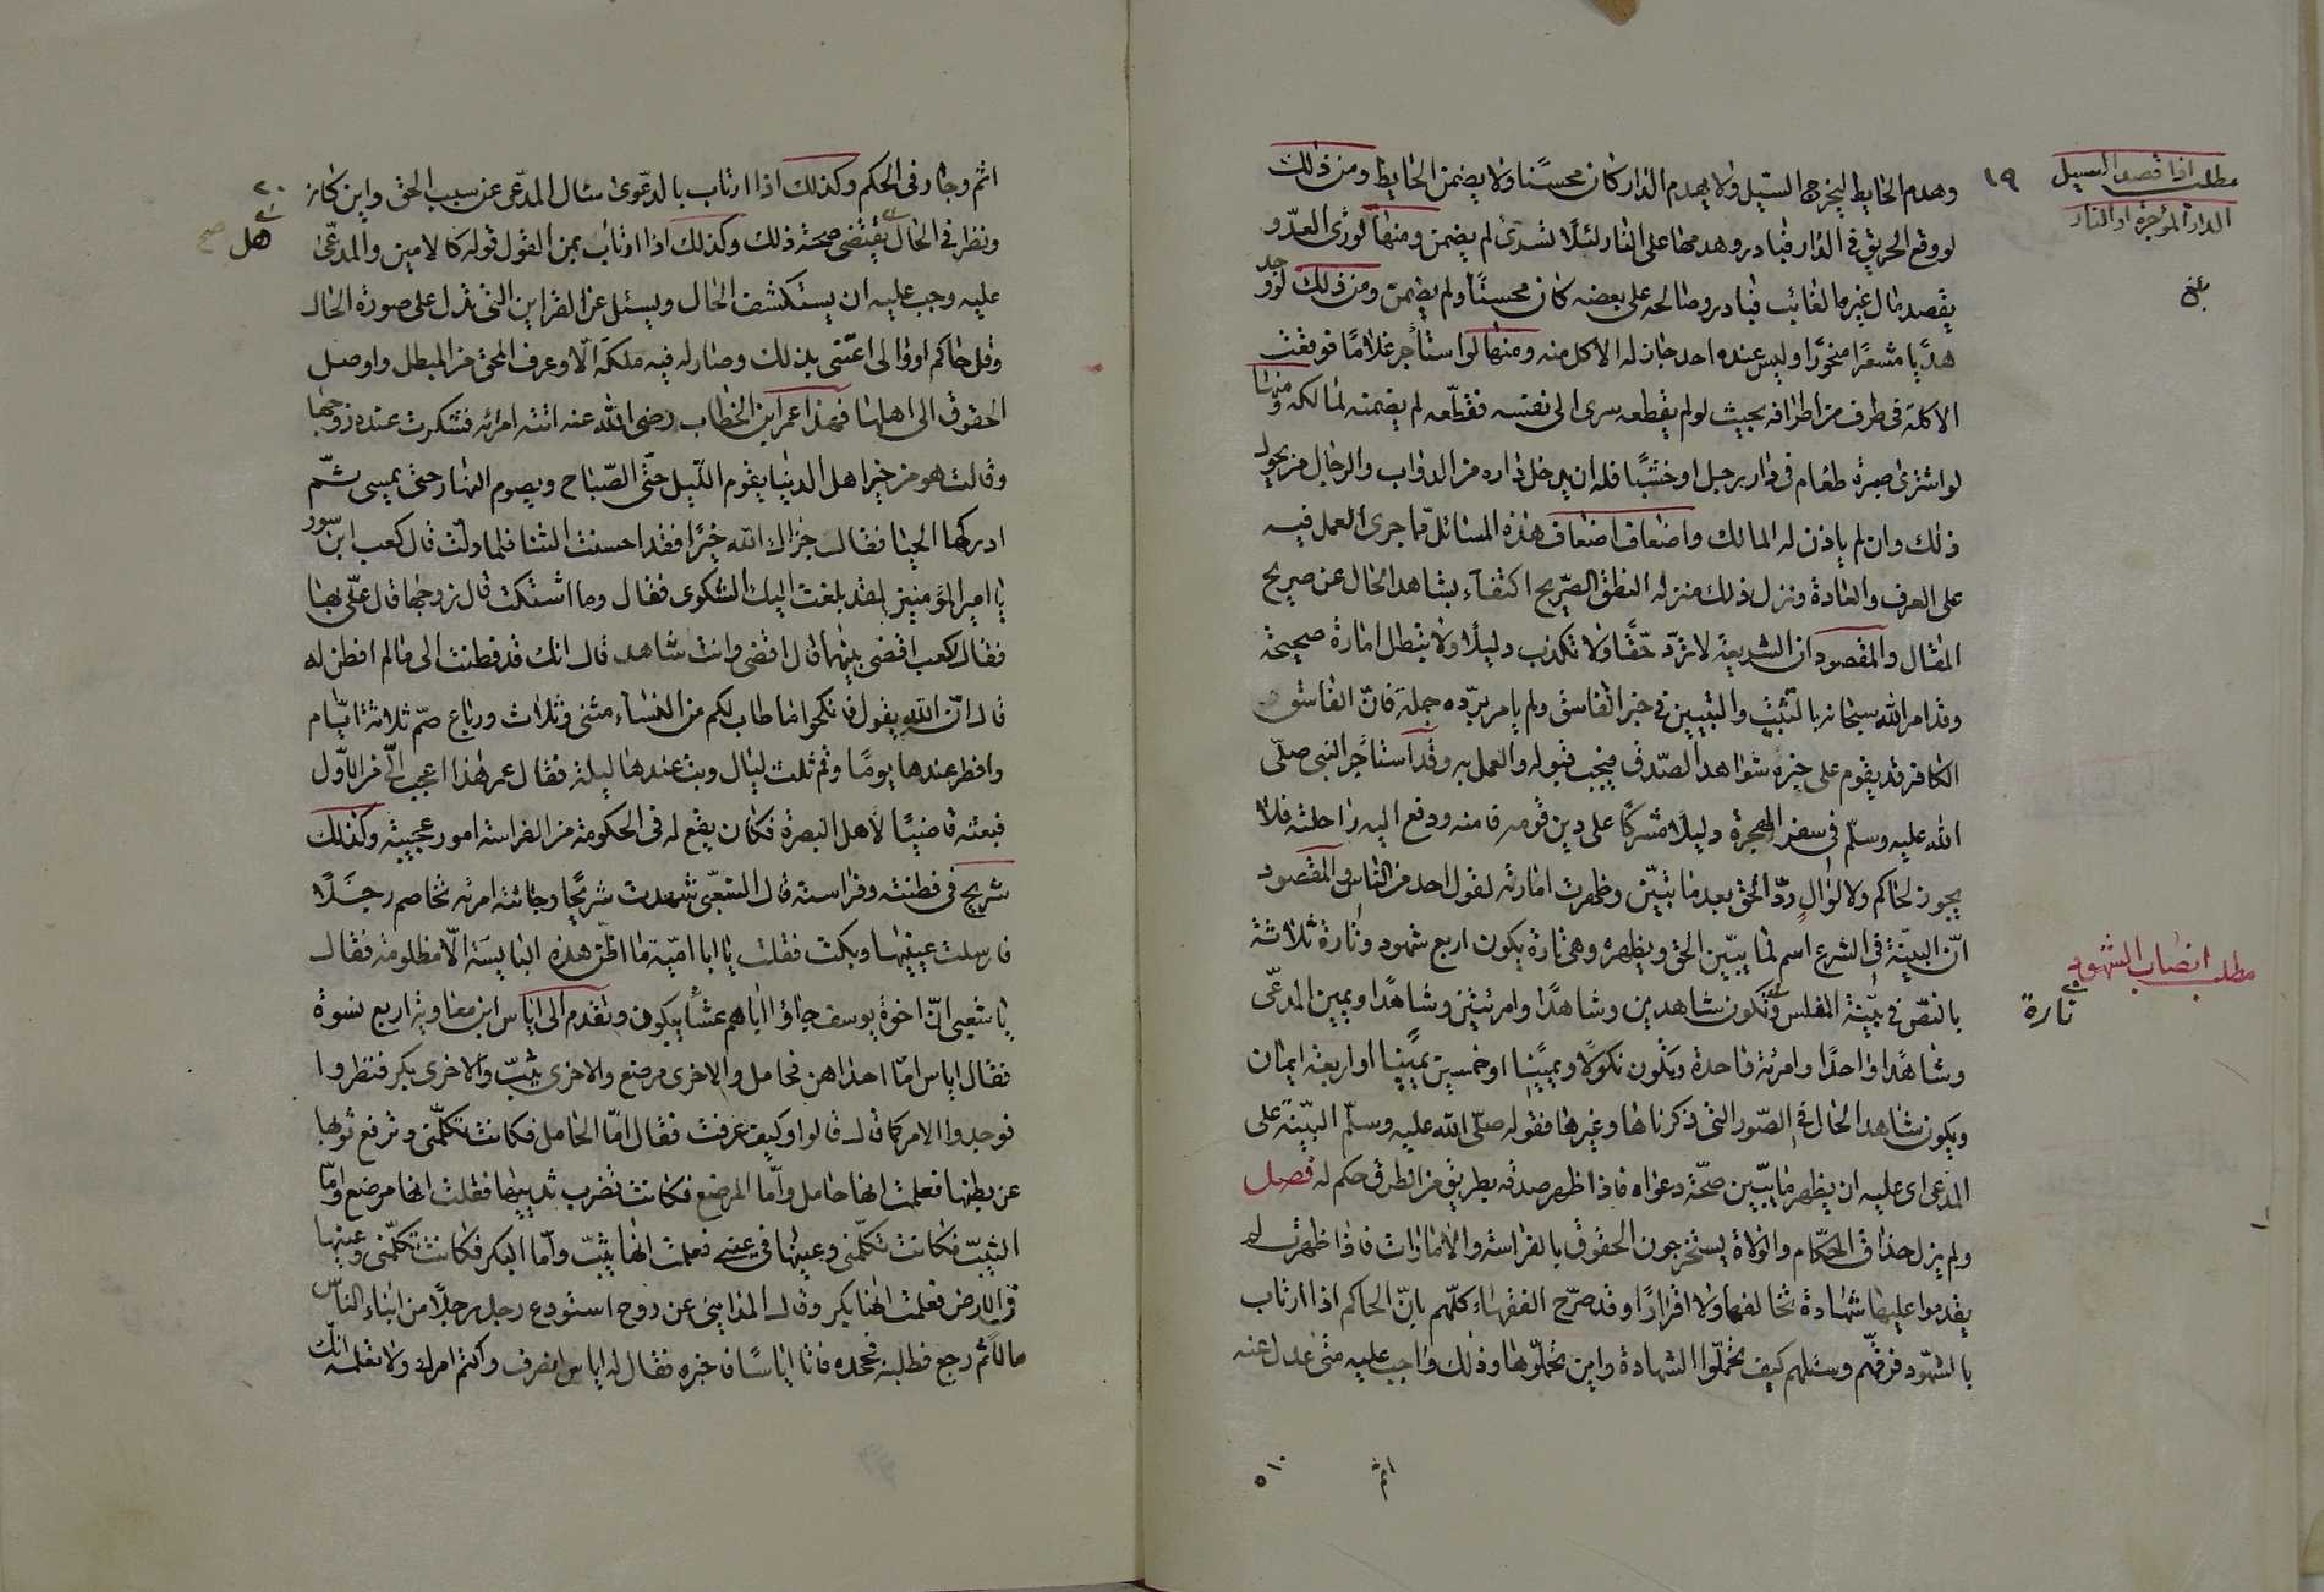 مطلب اذا قصد السيل
الدار المؤجرة او النار
بلغ
١٩
وهدم الحايط ليخرج السيل ولا يهدم الدار كان محسنًا ولا يضمن الحايط ومن ذلك
لو وقع الحريق في الدار فبادر وهدمها على النار لئلا تسرى لم يضمن ومنها لو رأى العدو
يقصد مال غيره الغائب فبادر وصالحه على بعضه كان محسنًا ولم يضمن ومن ذلك لو وجد
هديا مشعرًا منحورًا وليس عنده احد جاز له الاكل منه ومنها لو استأجر غلامًا فوقعت
الاكلة في طرف من اطرافه بحيث لو لم يقطعه سرى الى نفسه فقطعه لم يضمنه لمالكه ومنها
لو اشترى صبرة طعام في دار رجل او خشبًا فله ان يدخل داره من الدواب والرجال من يحول
ذلك وان لم ياذن له المالك واضعاف اضعاف هذه المسائل مما جرى العمل فيه
على العرف والعادة ونزل ذلك منزلة النطق الصريح اكتفاء بشاهد الحال عن صريح
المقال والمقصود ان الشريعة لا ترد حقًا ولا تكذب دليلًا ولا تبطل امارة صحيحة
وقد امر الله سبحانه بالتثبت والتبيين في خبر الفاسق ولم يامر برده جملة فان الفاسق
الكافر قد يقوم على خبره شواهد الصدق فيجب قبوله والعمل به وقد استأجر النبي صلى
الله عليه وسلم في سفر الهجرة دليلًا مشركًا على دين قومه فامنه ودفع اليه راحلته فلا
يجوز لحاكم ولا لوال رد الحق بعد ما تبين وظهرت امارته لقول احد من الناس والمقصود
ان البينة في الشرع اسم لما يبين الحق ويظهره وهي تارة يكون اربع شهود وتارة ثلاثة
مطلب انصاب الشهود
تارة
بالنص في بينة المفلس وتكون شاهدين وشاهدًا وامرئتين وشاهدًا ويمين المدعى
وشاهدًا واحدًا وامرئة واحدة وتكون نكولًا ويمينًا او خمسين يمينًا او اربعة ايمان
ويكون شاهد الحال في الصور التى ذكرناها وغيرها فقوله صلى الله عليه وسلم البينة على
المدعى اى عليه ان يظهر ما يبين صحة دعواه فاذا ظهر صدقه بطريق من الطرق حكم له فصل
ولم يزل حذاق الحكام والولاة يستخرجون الحقوق بالفراسة والامارات فاذا ظهرت لم
يقدموا عليها شهادة تخالفها ولا اقرارًا وقد صرح الفقهاء كلهم بان الحاكم اذا ارتاب
بالشهود فرقهم وسئلهم كيف تحملوا الشهادة واين تحملوها وذلك واجب عليه متى عدل عنه
اثم
٢٠
اثم وجار في الحكم وكذلك اذا ارتاب بالدعوى سئال المدعى عن سبب الحق واين كان
ونظر في الحال يقتضى صحة ذلك وكذلك اذا ارتاب بمن القول قوله كالامين والمدعى
هل صح
عليه وجب عليه ان يستكشف الحال ويسئل عن القراين التى تدل على صورة الحال
وقل حاكم او والى اعتنى بذلك وصار له فيه ملكة الا وعرف المحق من المبطل واوصل
الحقوق الى اهلها فهذا عمر ابن الخطاب رضى الله عنه اتته امرئه فتشكرت عنده زوجها
وقالت هو من خير اهل الدنيا يقوم الليل حتى الصباح ويصوم النهار حتى يمسى ثم
ادركها الحيا فقال جزاك الله خيرًا فقد احسنت الثنا فلما ولت قال كعب ابن سور
يا امير المؤمنين لقد بلغت اليك الشكوى فقال وما اشتكت قال زوجها قال على بهما
فقال لكعب اقض بينهما قال اقضى وانت شاهد قال انك قد فطنت الى ما لم افطن له
قال ان الله يقول فانكحوا ما طاب لكم من النساء مثنى وثلاث ورباع صم ثلاثة ايام
وافطر عندها يومًا وقم ثلث ليال وبت عندها ليلة فقال عمر هذا اعجب الى من الاول
فبعثه قاضيًا لاهل البصرة فكان يقع له في الحكومة من الفراسة امور عجيبة وكذلك
شريح في فطنته وفراسته قال الشعبى شهدت شريحًا وجائته امرئه تخاصم رجلًا
فارسلت عينيها وبكت فقلت يا ابا امية ما اظن هذه البايسة الا مظلومة فقال
يا شعبى ان اخوة يوسف جاؤا اباهم عشأ يبكون وتقدم الى اياس ابن معاوية اربع نسوة
فقال اياس اما احداهن فحامل والاخرى مرضع والاخرى ثيب والاخرى بكر فنظروا
فوجدوا الامر كما قال قالوا وكيف عرفت فقال اما الحامل فكانت تكلمنى وترفع ثوبها
عن بطنها فعلمت انها حامل واما المرضع فكانت تضرب ثدييها فقلت انها مرضع واما
الثيب فكانت تكلمنى وعينها في عينى فعلمت انها ثيب واما البكر فكانت تكلمنى وعينها
في الارض فعلمت انها بكر وقال المداينى عن روح استودع رجل رجلًا من ابناء الناس
مالًا ثم رجع فطلبه فجحده فاتا اياسًا فاخبره فقال له اياس انصرف واكتم امرك ولا تعلمه انك